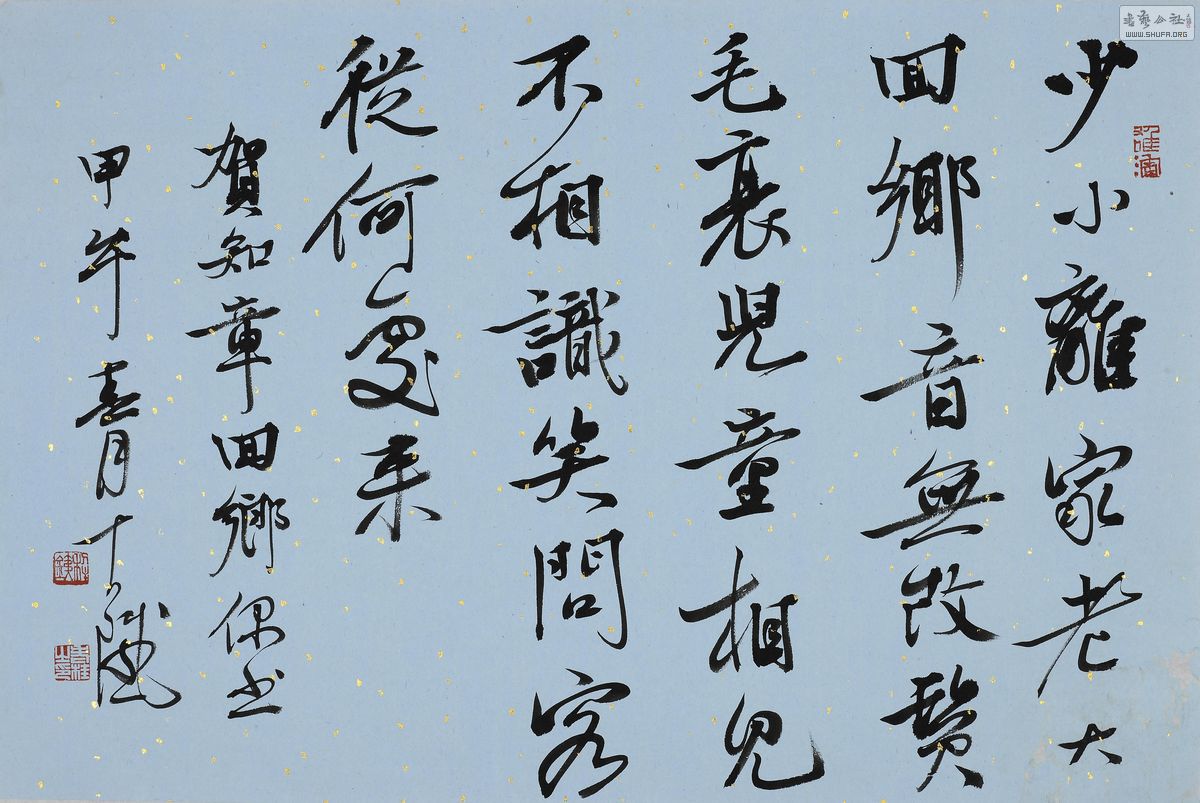 少小離家老大
回鄉音無改鬢
毛衰兒童相見
不相識笑問客
從何處來
賀知章回鄉偶書
甲午月
書藝公社
WWW.SHUFA.ORG